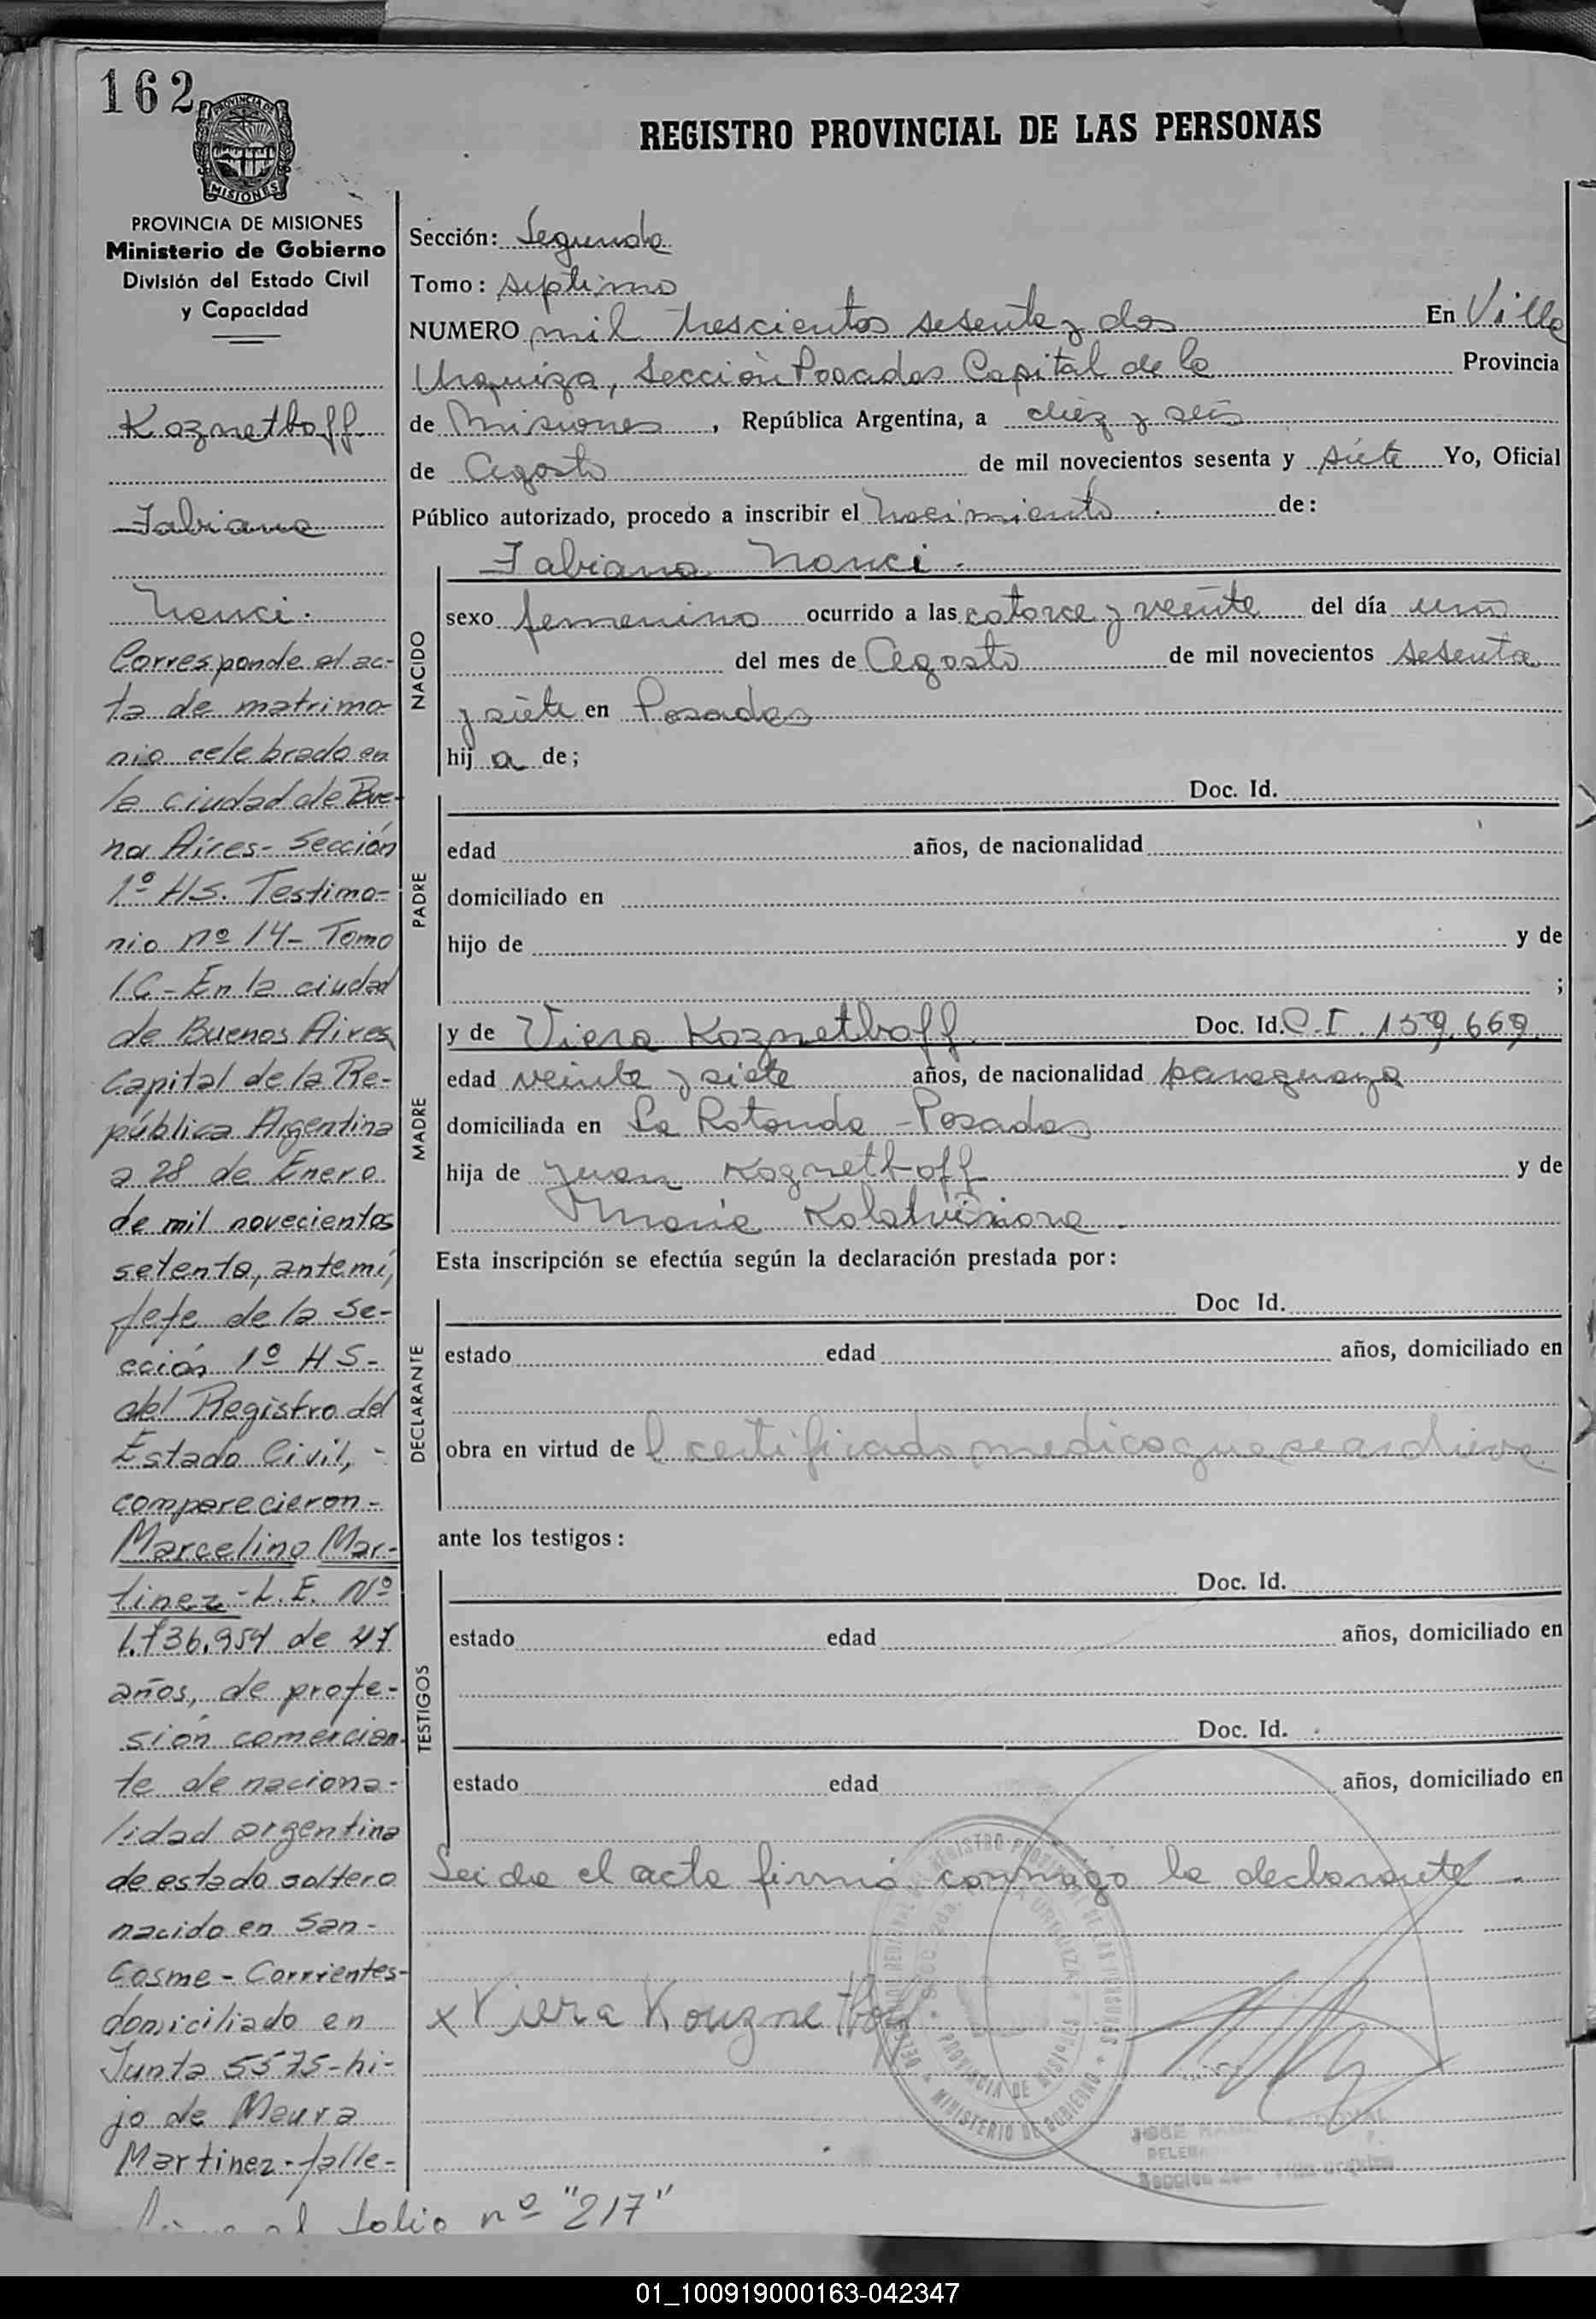 162
PROVINCIA DE
MISIONES
REGISTRO PROVINCIAL DE LAS PERSONAS
PROVINCIA DE MISIONES
Ministerio de Gobierno
División del Estado Civil
y Capacidad
Koznethoff
Fabiana
Nanci.
Corresponde al ac-
ta de matrimo-
nio celebrado en
la ciudad de Bue-
nos Aires- Sección
1º HS. Testimo-
nio nº 14- Tomo
1C- En la ciudad
de Buenos Aires
Capital de la Re-
pública Argentina
a 28 de Enero
de mil novecientos
setenta, ante mí,
Jefe de la Se-
cción 1º HS-
del Registro del
Estado Civil, -
comparecieron-
Marcelino Mar-
tinez- L.E. Nº
1.736.954 de 47
años, de profe-
sión comercian-
te de naciona-
lidad argentina
de estado soltero
nacido en San-
Cosme- Corrientes-
domiciliado en
Junta 5575- hi-
jo de Maura
Martinez- falle-
al folio nº "217"
Sección: Segunda
Tomo: septimo
NUMERO mil trescientos sesenta y dos En Villa
Urquiza, Sección Posadas Capital de la Provincia
de Misiones, República Argentina, a diez y seis
de Agosto de mil novecientos sesenta y siete Yo, Oficial
Público autorizado, procedo a inscribir el nacimiento de:
Fabiana Nanci.
NACIDO
sexo femenino ocurrido a las catorce y veinte del día uno
del mes de Agosto de mil novecientos sesenta
y siete en Posadas
hij a de;
PADRE
Doc. Id.
edad años, de nacionalidad
domiciliado en
hijo de y de
;
MADRE
y de Viera Koznethoff Doc. Id. C.I. 159.669
edad veinte y siete años, de nacionalidad paraguaya
domiciliada en La Rotonda - Posadas
hija de Juan Koznethoff y de
Maria
Esta inscripción se efectúa según la declaración prestada por:
DECLARANTE
Doc Id.
estado edad años, domiciliado en
obra en virtud de l certificado medico que se archiva
ante los testigos:
TESTIGOS
Doc. Id.
estado edad años, domiciliado en
Doc. Id.
estado edad años, domiciliado en
Leida el acta firmó conmigo la declarante.
x Viera Kouznethoff
PROVINCIA DE MISIONES
MINISTERIO DE GOBIERNO
01_100919000163-042347